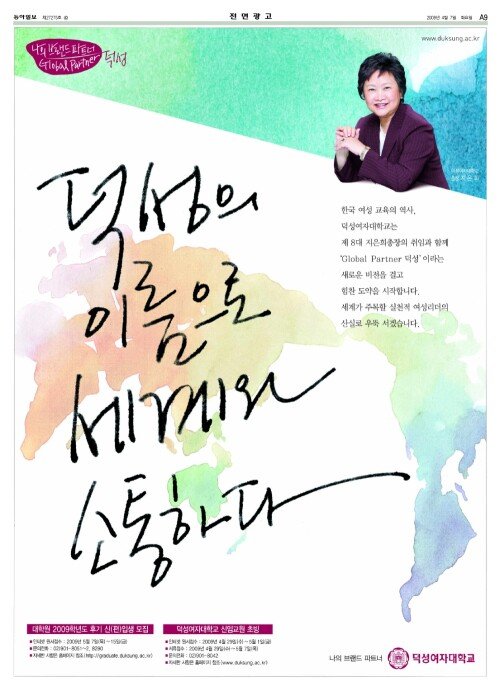 동아일보
전면광고
2009년 4월 7일 화요일 A9
나의 브랜드 파트너
Global Partner
덕성
www.duksung.ac.kr
한국 여성 교육의 역사,
덕성여자대학교는
제 8대 지은희총장의 취임과 함께
'Global Partner 덕성'이라는
새로운 비전을 걸고
힘찬 도약을 시작합니다.
세계가 주목할 실천적 여성리더의
산실로 우뚝 서겠습니다.
덕성의
이름으로
세계와
소통하다
대학원 2009학년도 후기 신(편)입생 모집
■인터넷 원서접수 : 2009년 5월 7일(목)~15일(금)
■문의전화 : 02)901-8051~2, 8290
■자세한 사항은 홈페이지 참조(http://graduate.duksung.ac.kr)
덕성여자대학교 신임교원 초빙
■인터넷 원서접수 : 2009년 4월 29일(수)~5월 1일(금)
■서류접수 : 2009년 4월 29일(수)~5월 7일(목)
■문의전화 : 02)901-8042
■자세한 사항은 홈페이지 참조(www.duksung.ac.kr)
나의 브랜드 파트너
덕성여자대학교